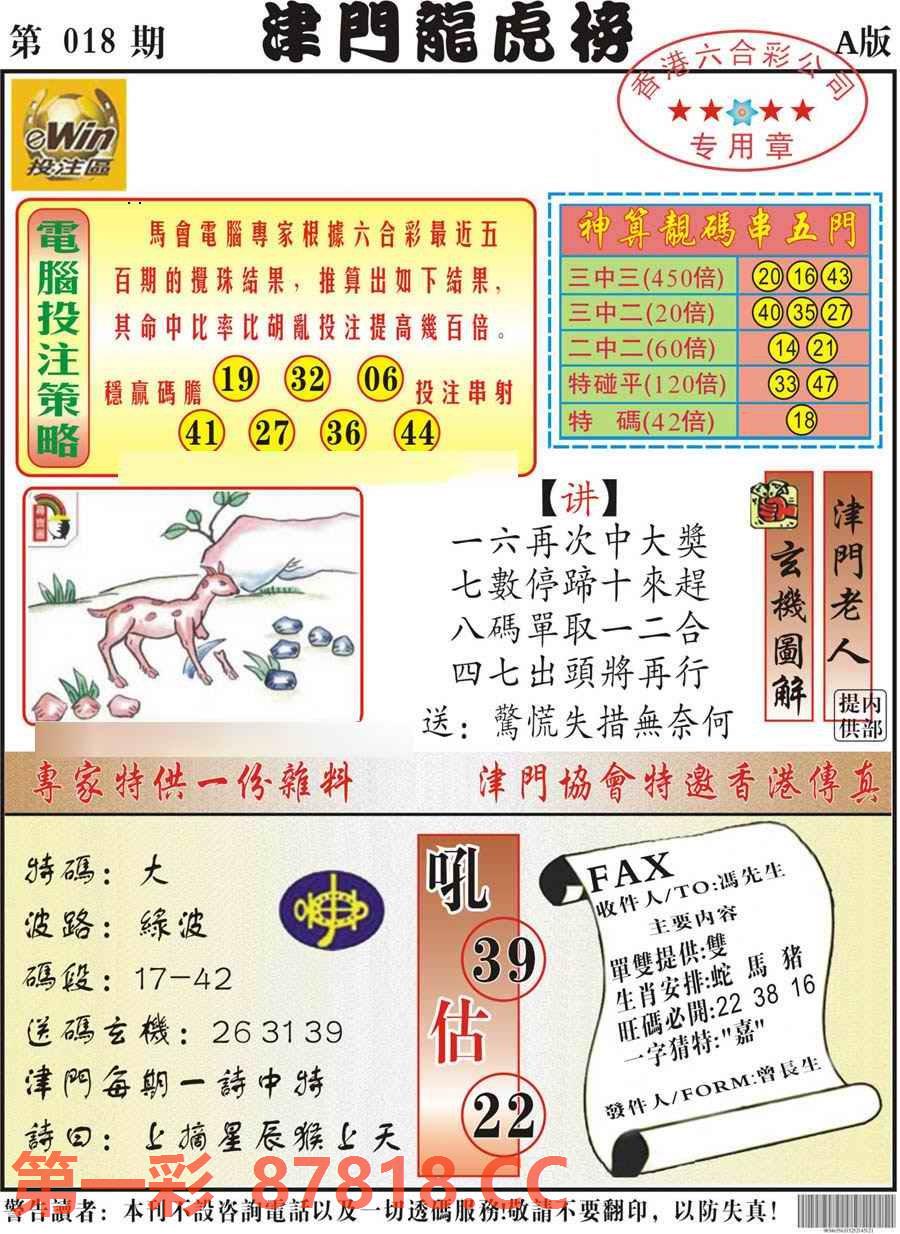 第 018 期
津門龍虎榜
A版
香港六合彩公司
专用章
eWin
投注區
電腦投注策略
馬會電腦專家根據六合彩最近五
百期的攪珠結果，推算出如下結果，
其命中比率比胡亂投注提高幾百倍。
穩贏碼膽 19 32 06 投注串射
41 27 36 44
神算靚碼串五門
三中三(450倍) 20 16 43
三中二(20倍) 40 35 27
二中二(60倍) 14 21
特碰平(120倍) 33 47
特 碼(42倍) 18
尋寶圖
【讲】
一六再次中大獎
七數停蹄十來趕
八碼單取一二合
四七出頭將再行
送：驚慌失措無奈何
玄機圖解
津門老人
内部提供
專家特供一份雜料
津門協會特邀香港傳真
特碼：大
波路：綠波
碼段：17-42
送碼玄機：26 31 39
津門每期一詩中特
詩曰：上摘星辰猴上天
吼
39
估
22
FAX
收件人/TO:馮先生
主要内容
單雙提供:雙
生肖安排:蛇 馬 猪
旺碼必開:22 38 16
一字猜特:"嘉"
發件人/FORM:曾長生
第一彩 87818.CC
警告讀者：本刊不設咨詢電話以及一切透碼服務!敬請不要翻印，以防失真!